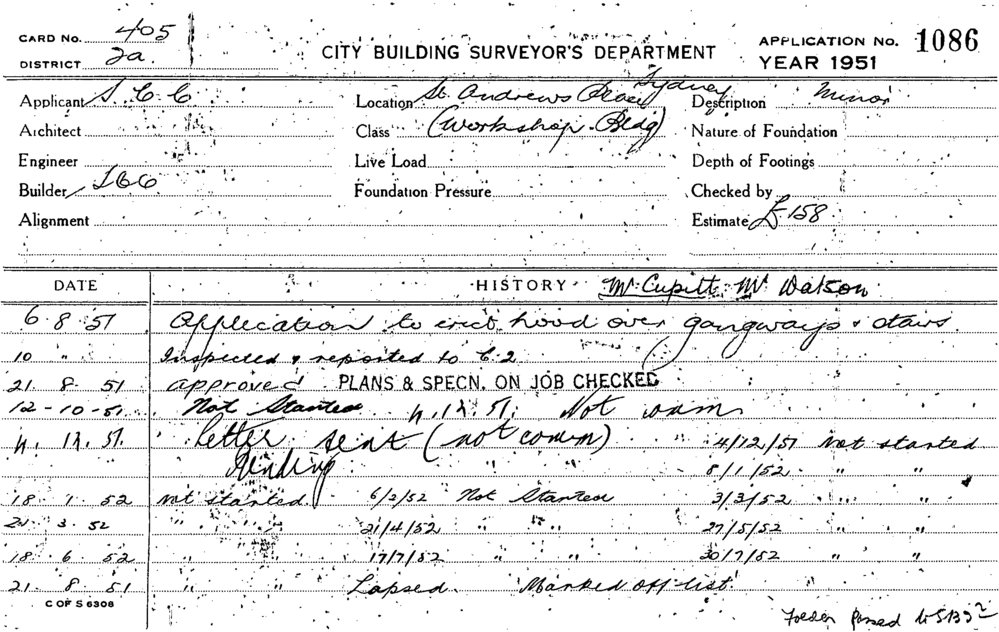 CARD No. 405
DISTRICT 2a
CITY BUILDING SURVEYOR'S DEPARTMENT
APPLICATION No. 1086
YEAR 1951
Applicant S.C.C Location St. Andrews Place Sydney Description Minor
Architect Class (Workshop Bldg) Nature of Foundation
Engineer Live Load Depth of Footings
Builder Foundation Pressure Checked by
Alignment Estimate £158
DATE HISTORY Mr Cupitt Mr Watson
6 8 51 Application to erect hood over gangways & stairs
10 " Inspected & reported to C.2
21 8 51 approved PLANS & SPECN. ON JOB CHECKED
12-10-51 Not Started 4.12.51. Not comm
4. 12. 51 Letter sent (not comm) " 4/12/51 Not started
" " 8/1/52 " "
18 1 52 not started 6/2/52 Not Started 3/3/52 " "
21 3 52 " " 21/4/52 " " 27/5/52
18 6 52 " 17/7/52 " " 20/7/52 " "
21 8 51 " " Lapsed. Marked off list
C OF S 6308
Folder passed to